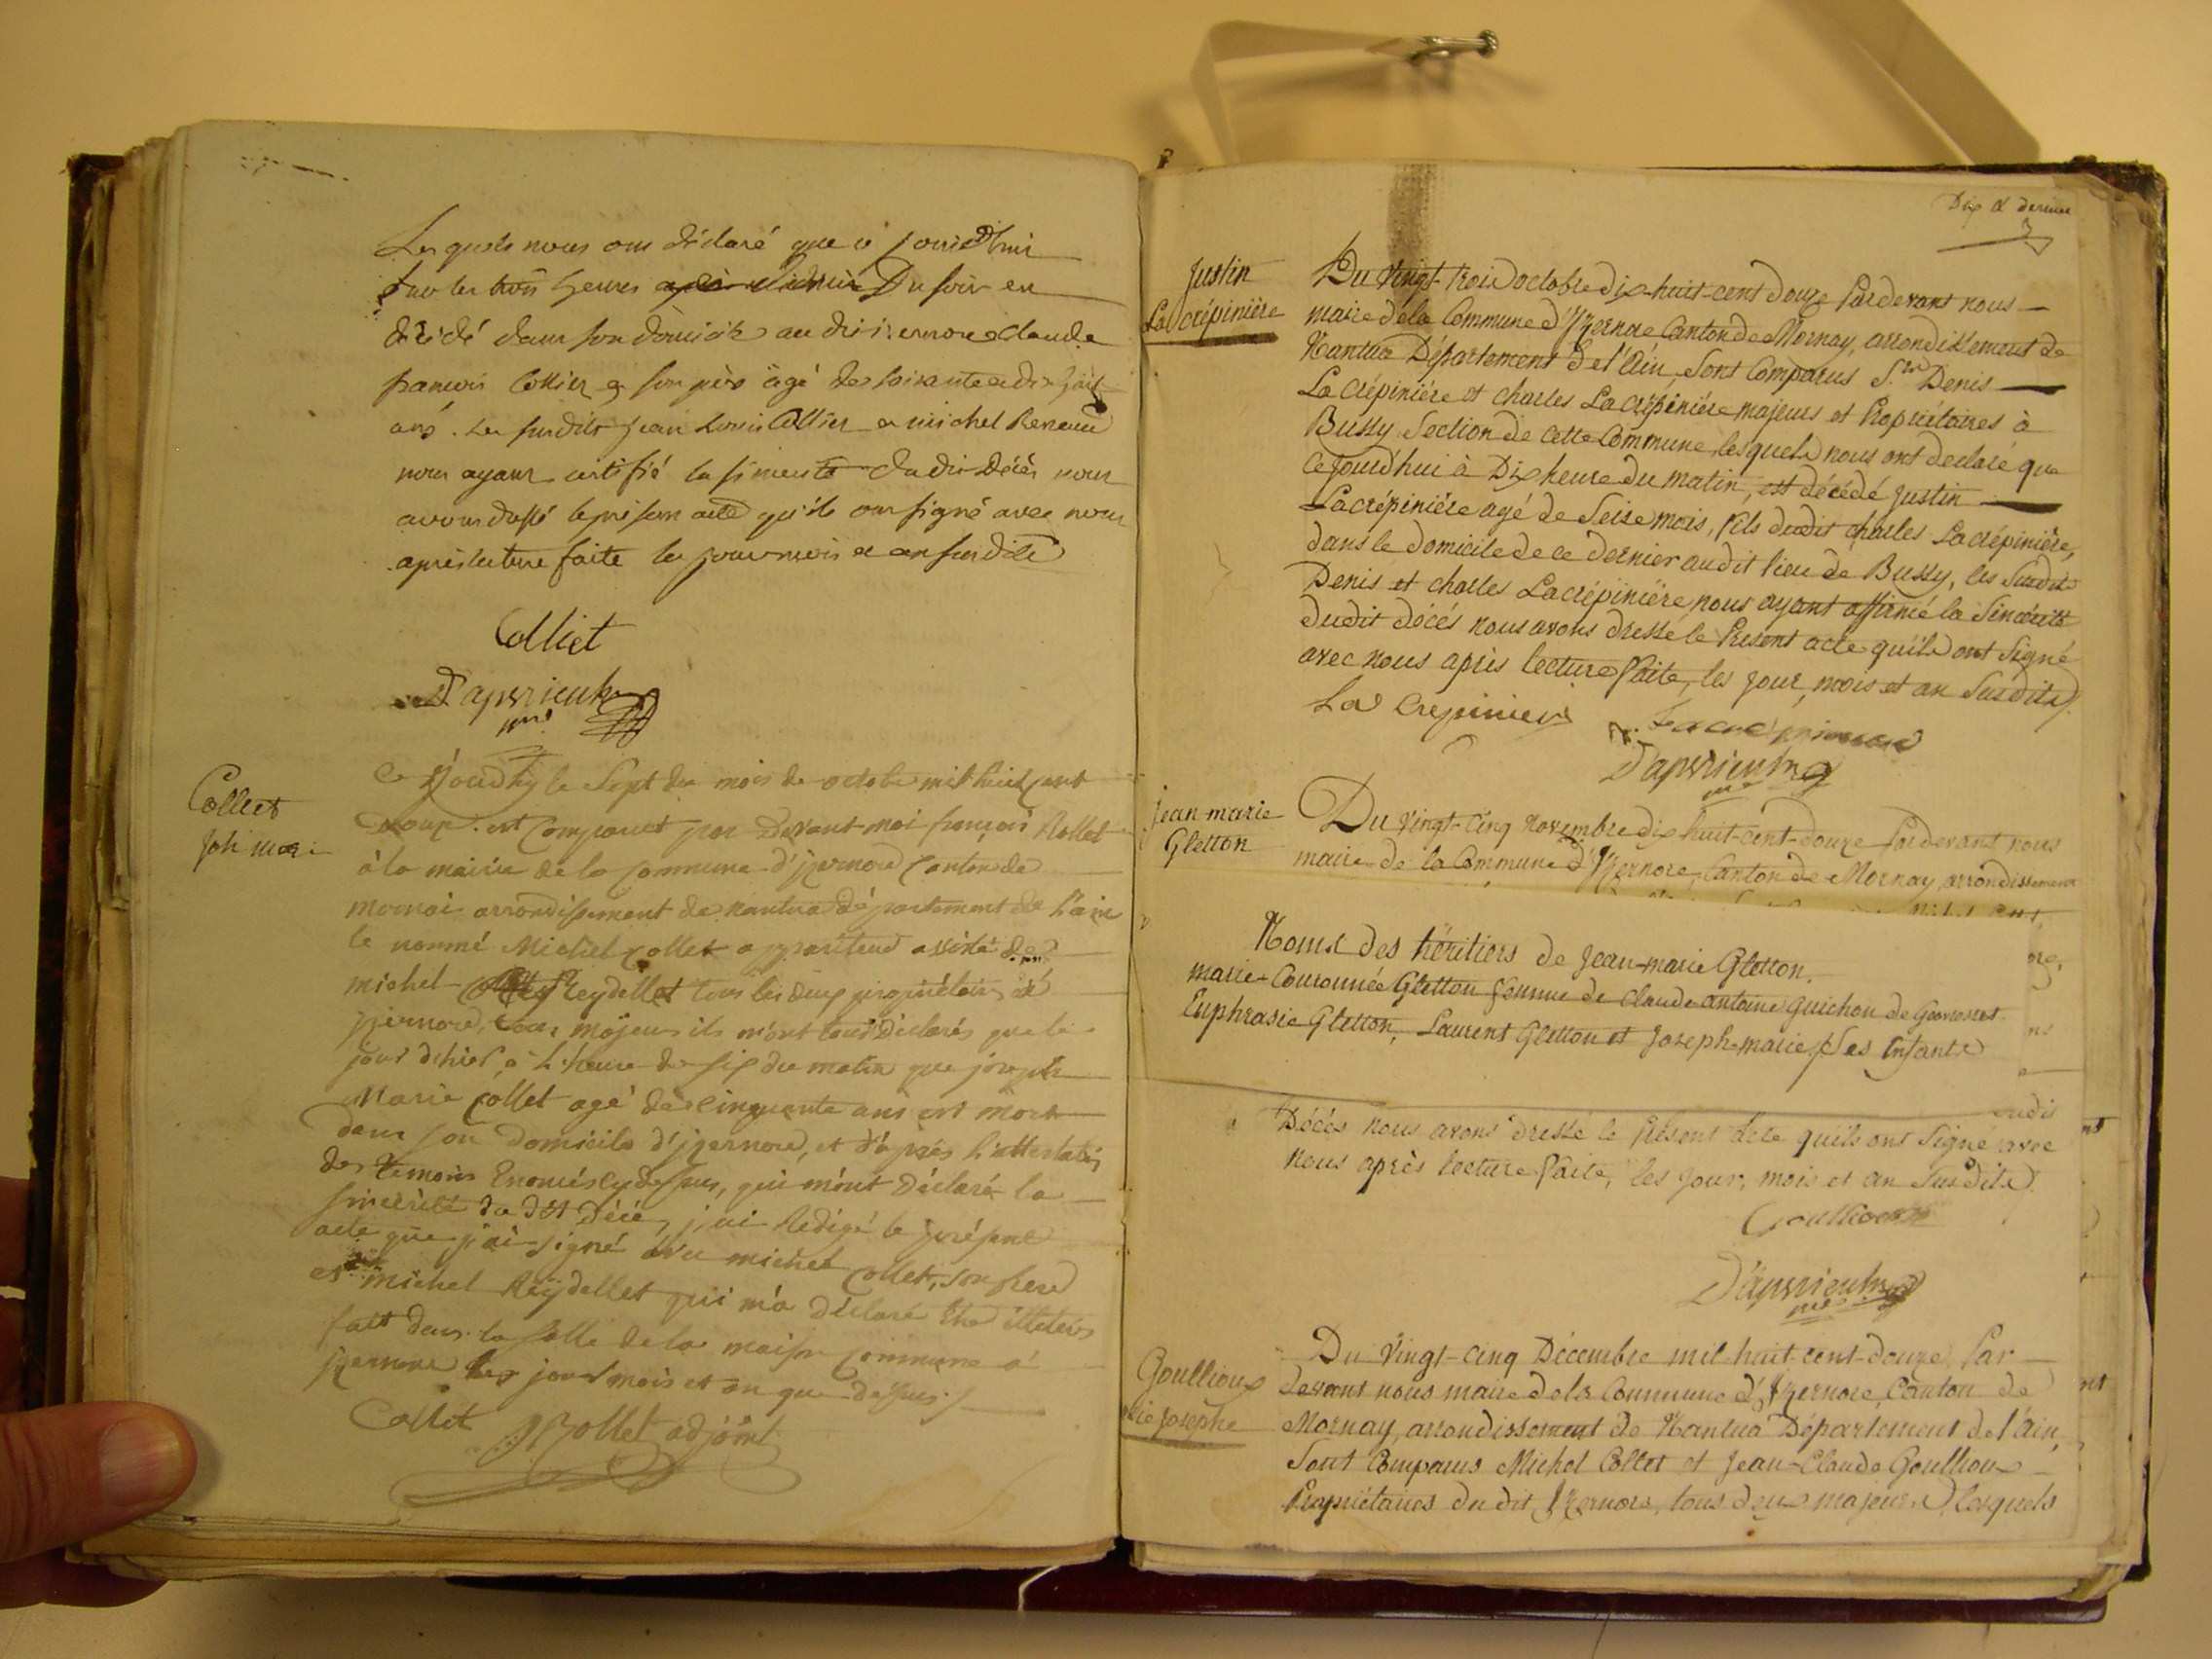 Lesquels nous ont déclaré que ce jourd'hui
sur les trois heures du soir est
décédé dans son domicile audit izernore Claude
françois Colliet son père agé de soixante et dix huit
ans. Les susdits jean Louis Colliet et michel Renaud
nous ayant certifié la sincerité dudit Décès nous
avons dressé le présent acte qu'ils ont signé avec nous
après lecture faite les jour mois et an susdits
Colliet
D'apvrieulx
mre
Collet
Jph marie
Ce Ejourdhuy le Sept du mois de octobre mil huit cent
Douze est comparut par Devant moi françois Rollet
à la mairie de la commune d'jzernore canton de
mornai arrondissement de nantua département de l'ain
le nommé Michel Collet assisté de
michel Reydellet tous les deux propriétaires à
jzernore, tous majeurs ils m'ont tous Déclarés que le
jour d'hier, à l'heure de six du matin que joseph
Marie Collet agé de cinquante ans est mort
dans son domicile d'jzernore, et d'après l'attestation
des témoins Enomés cydessus, qui m'ont Déclaré la
sincérité du dit Décé, j'ai Redigé le présent
acte que j'ai signé avec michel Collet, son frere
et michel Reydellet qui m'a déclaré Etre illeteré
fait dans la salle de la maison commune à
jzernore les jour mois et an que dessus
Collet Rollet adjoint
Dix et dernier
Justin
La Crépinière
Du Vingt-trois octobre dix-huit-cent douze Pardevant nous
maire de la Commune d'Yzernore Canton de Mornay, arrondissement de
Nantua Département de l'Ain, sont Comparus S.r Denis
La Crépinière et charles La Crépinière majeurs et Propriétaires à
Bussy Section de cette Commune, lesquels nous ont declaré que
Cejourd'hui à Dix heure du matin, est décédé Justin
Lacrépinière agé de Seize mois, fils dudit charles Lacrépinière,
dans le domicile de ce dernier audit lieu de Bussy, les Susdits
Denis et charles Lacrépinière nous ayant affirmé la Sincérité
dudit décès nous avons dressé le Present acte qu'ils ont Signé
avec nous après lecture faite, les jour, mois et an Susdits.
La Crepiniere
Lacrépiniere
D'apvrieulx
mre
jean-marie
Gletton
Du vingt-cinq novembre dix huit-cent-douze Pardevant nous
maire de la Commune d'Yzernore, Canton de Mornay, arrondissement
Noms des héritiers de Jean-marie Gletton.
marie-Couronnée Gletton femme de Claude antoine Guichon de
Euphrasie Gletton, Laurent Gletton et Joseph-marie, ses Enfants
Décès nous avons dressé le Présent acte quils ont Signé avec
nous après lecture faite, les jour, mois et an Susdits.
Goullioux
D'apvrieulx
mre
Goullioux
josephe
Du Vingt-cinq Décembre mil-huit-cent-douze Par
Devant nous maire dela Commune d'Yzernore, Canton de
Mornay, arrondissement de Nantua Département de l'Ain,
Sont Comparus Michel Collet et Jean-Claude Goullioux
Propriétaires dudit Yzernore, tous deux majeurs, lesquels